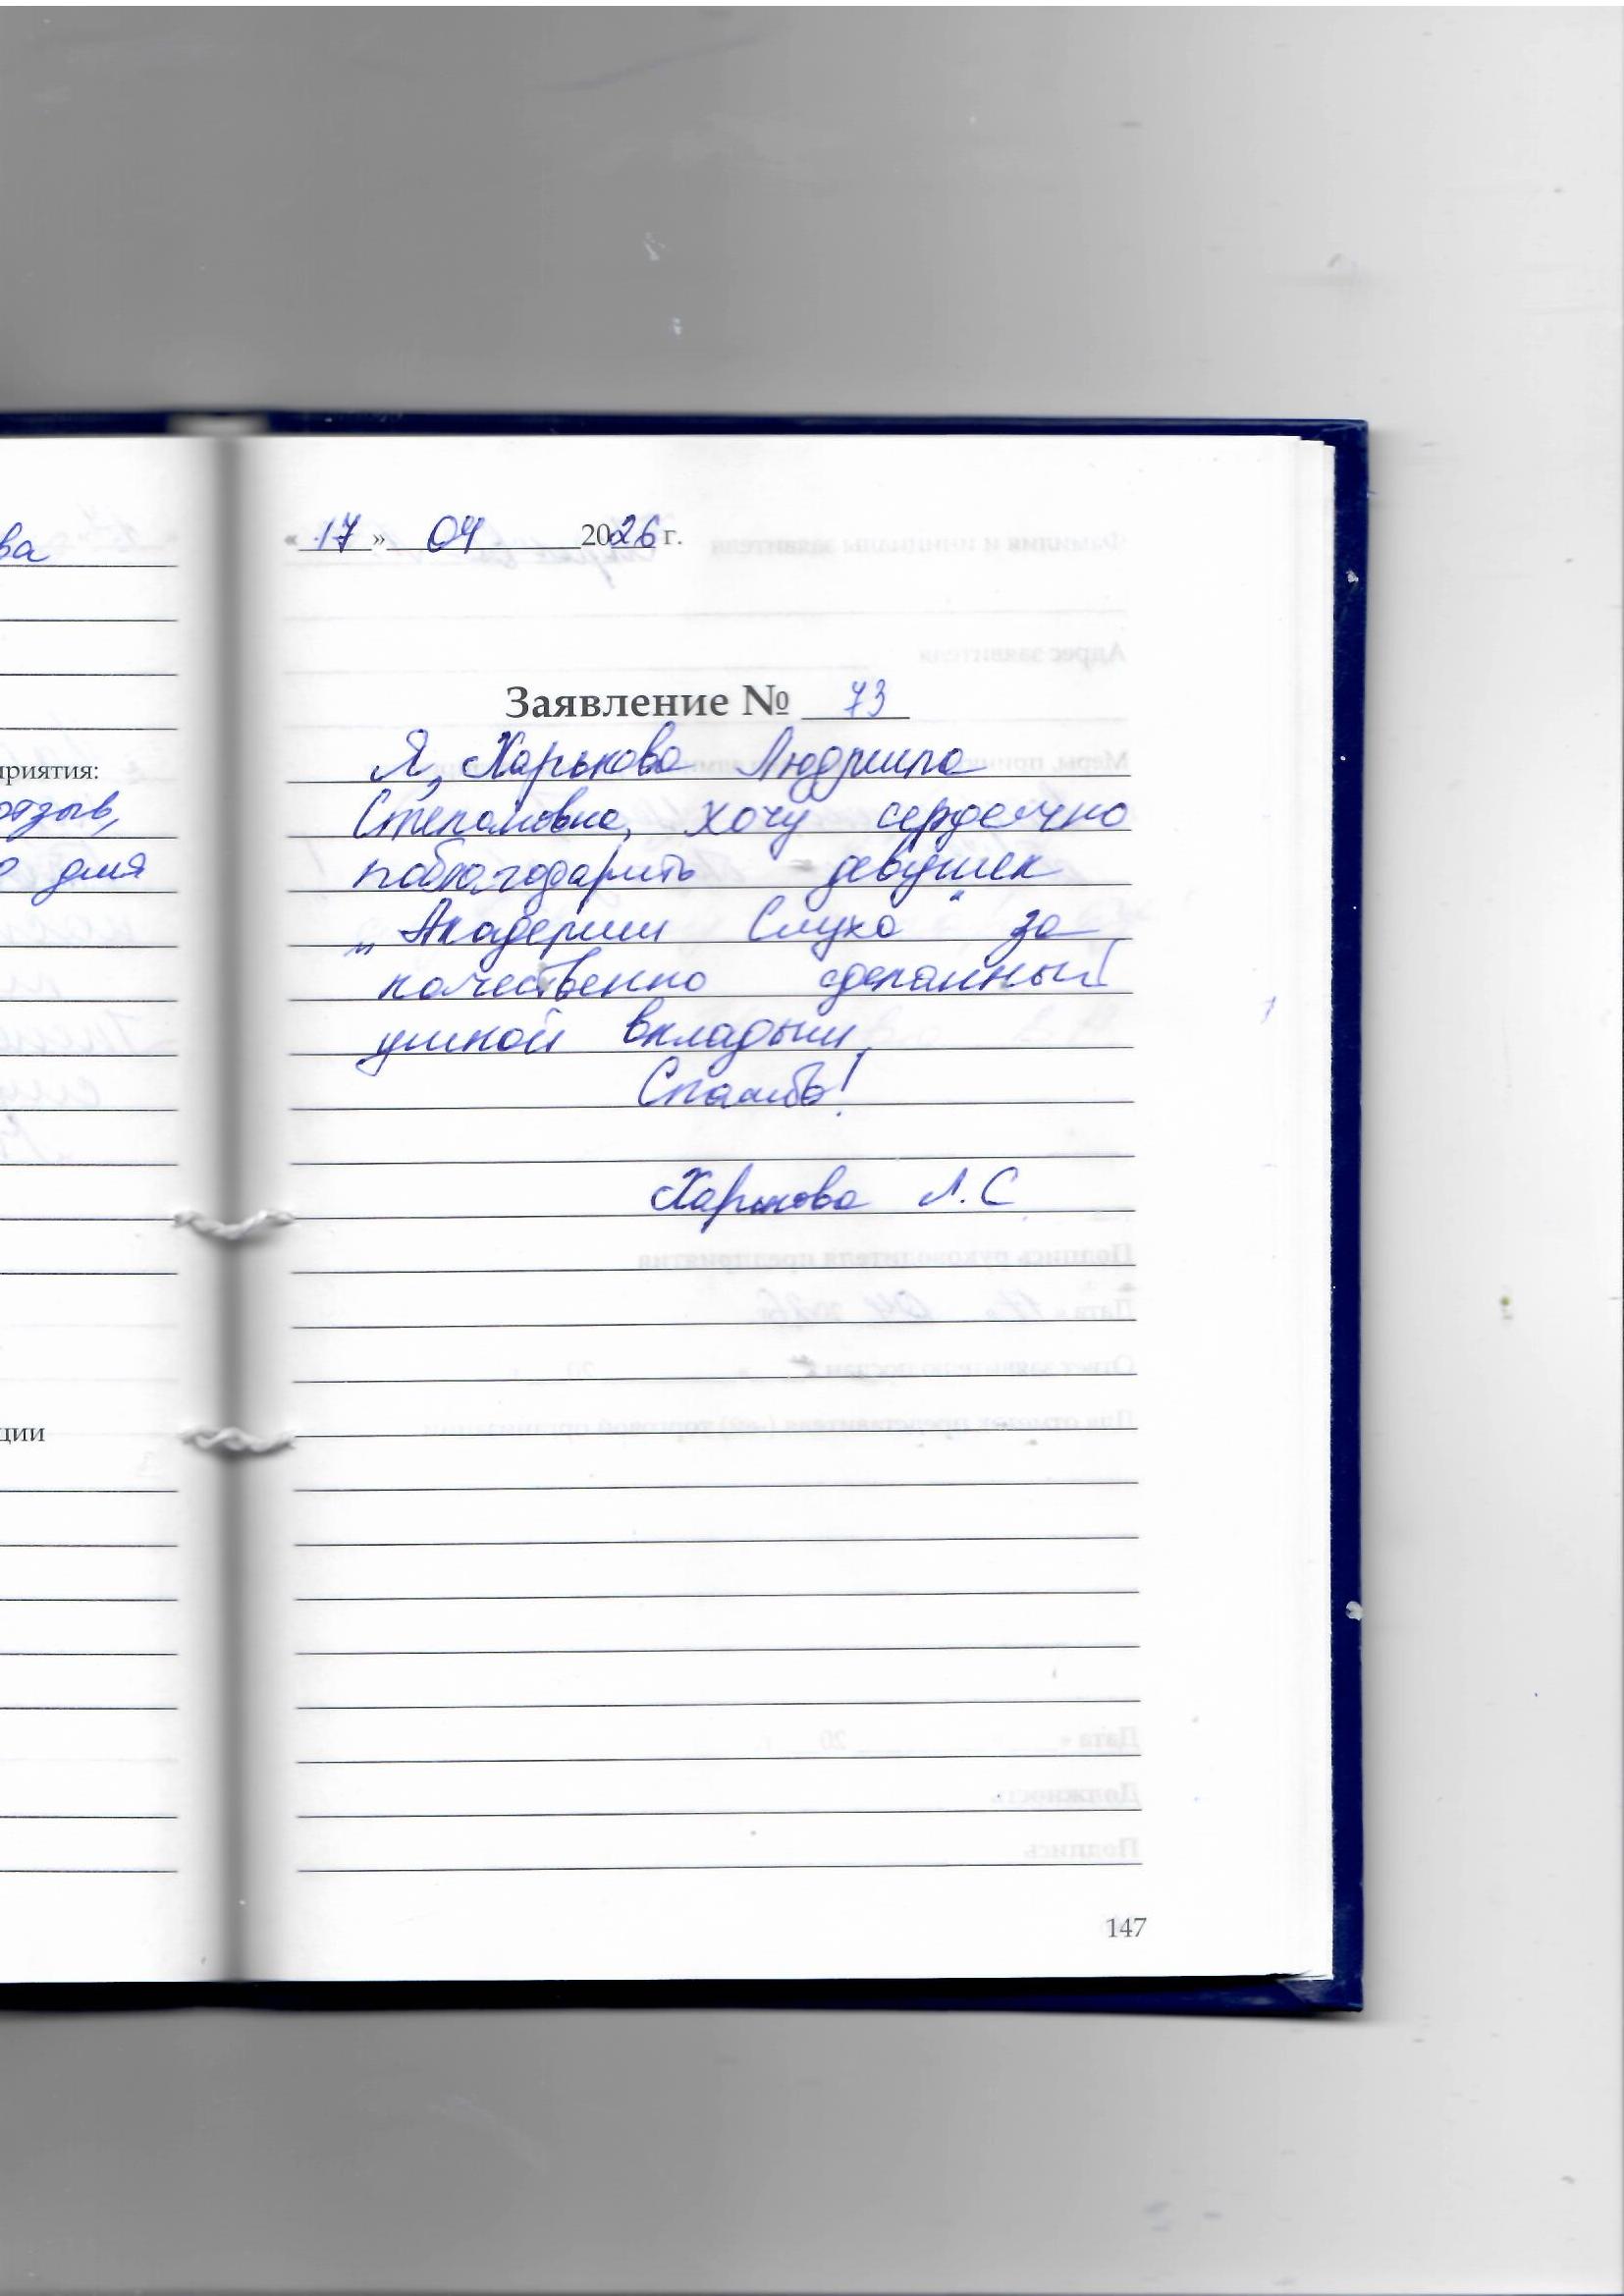 ва
приятия:
отзыв,
для
ции
«17» 04 2026 г.
Заявление № 73
Я, Харькова Людмила
Степановна, хочу сердечно
поблагодарить девушек
„Академии Слуха“ за
качественно сделанный
ушной вкладыш.
Спасибо!
Харькова Л.С
147